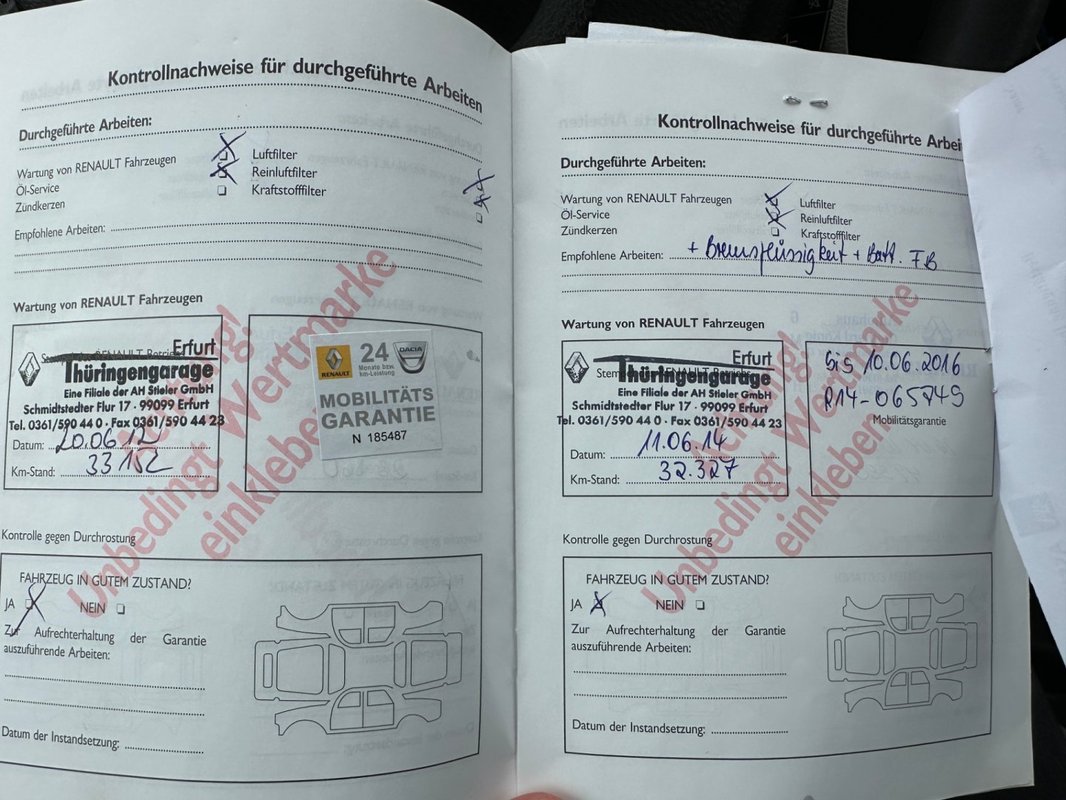 Kontrollnachweise für durchgeführte Arbeiten
Durchgeführte Arbeiten:
Wartung von RENAULT Fahrzeugen
Luftfilter
Öl-Service
Reinluftfilter
Zündkerzen
Kraftstofffilter
Empfohlene Arbeiten:
Wartung von RENAULT Fahrzeugen
Achtung!
Unbedingt Wertmarke
einkleben!
Erfurt
Thüringengarage
Eine Filiale der AH Stieler GmbH
Schmidtstedter Flur 17 · 99099 Erfurt
Tel. 0361/590 44 0 · Fax 0361/590 44 23
Datum: 20.06.12
Km-Stand: 33152
RENAULT
24
Monate bzw.
km-Leistung
DACIA
MOBILITÄTS
GARANTIE
N 185487
Kontrolle gegen Durchrostung
FAHRZEUG IN GUTEM ZUSTAND?
JA NEIN
Zur Aufrechterhaltung der Garantie
auszuführende Arbeiten:
Datum der Instandsetzung:
Kontrollnachweise für durchgeführte
Durchgeführte Arbeiten:
Wartung von RENAULT Fahrzeugen
Luftfilter
Öl-Service
Reinluftfilter
Zündkerzen
Kraftstofffilter
Empfohlene Arbeiten: + Bremsflüssigkeit + Batt. FB
Wartung von RENAULT Fahrzeugen
Achtung!
Unbedingt Wertmarke
einkleben!
Erfurt
Thüringengarage
Eine Filiale der AH Stieler GmbH
Schmidtstedter Flur 17 · 99099 Erfurt
Tel. 0361/590 44 0 · Fax 0361/590 44 23
Datum: 11.06.14
Km-Stand: 32.327
bis 10.06.2016
R14-065749
Mobilitätsgarantie
Kontrolle gegen Durchrostung
FAHRZEUG IN GUTEM ZUSTAND?
JA NEIN
Zur Aufrechterhaltung der Garantie
auszuführende Arbeiten:
Datum der Instandsetzung: